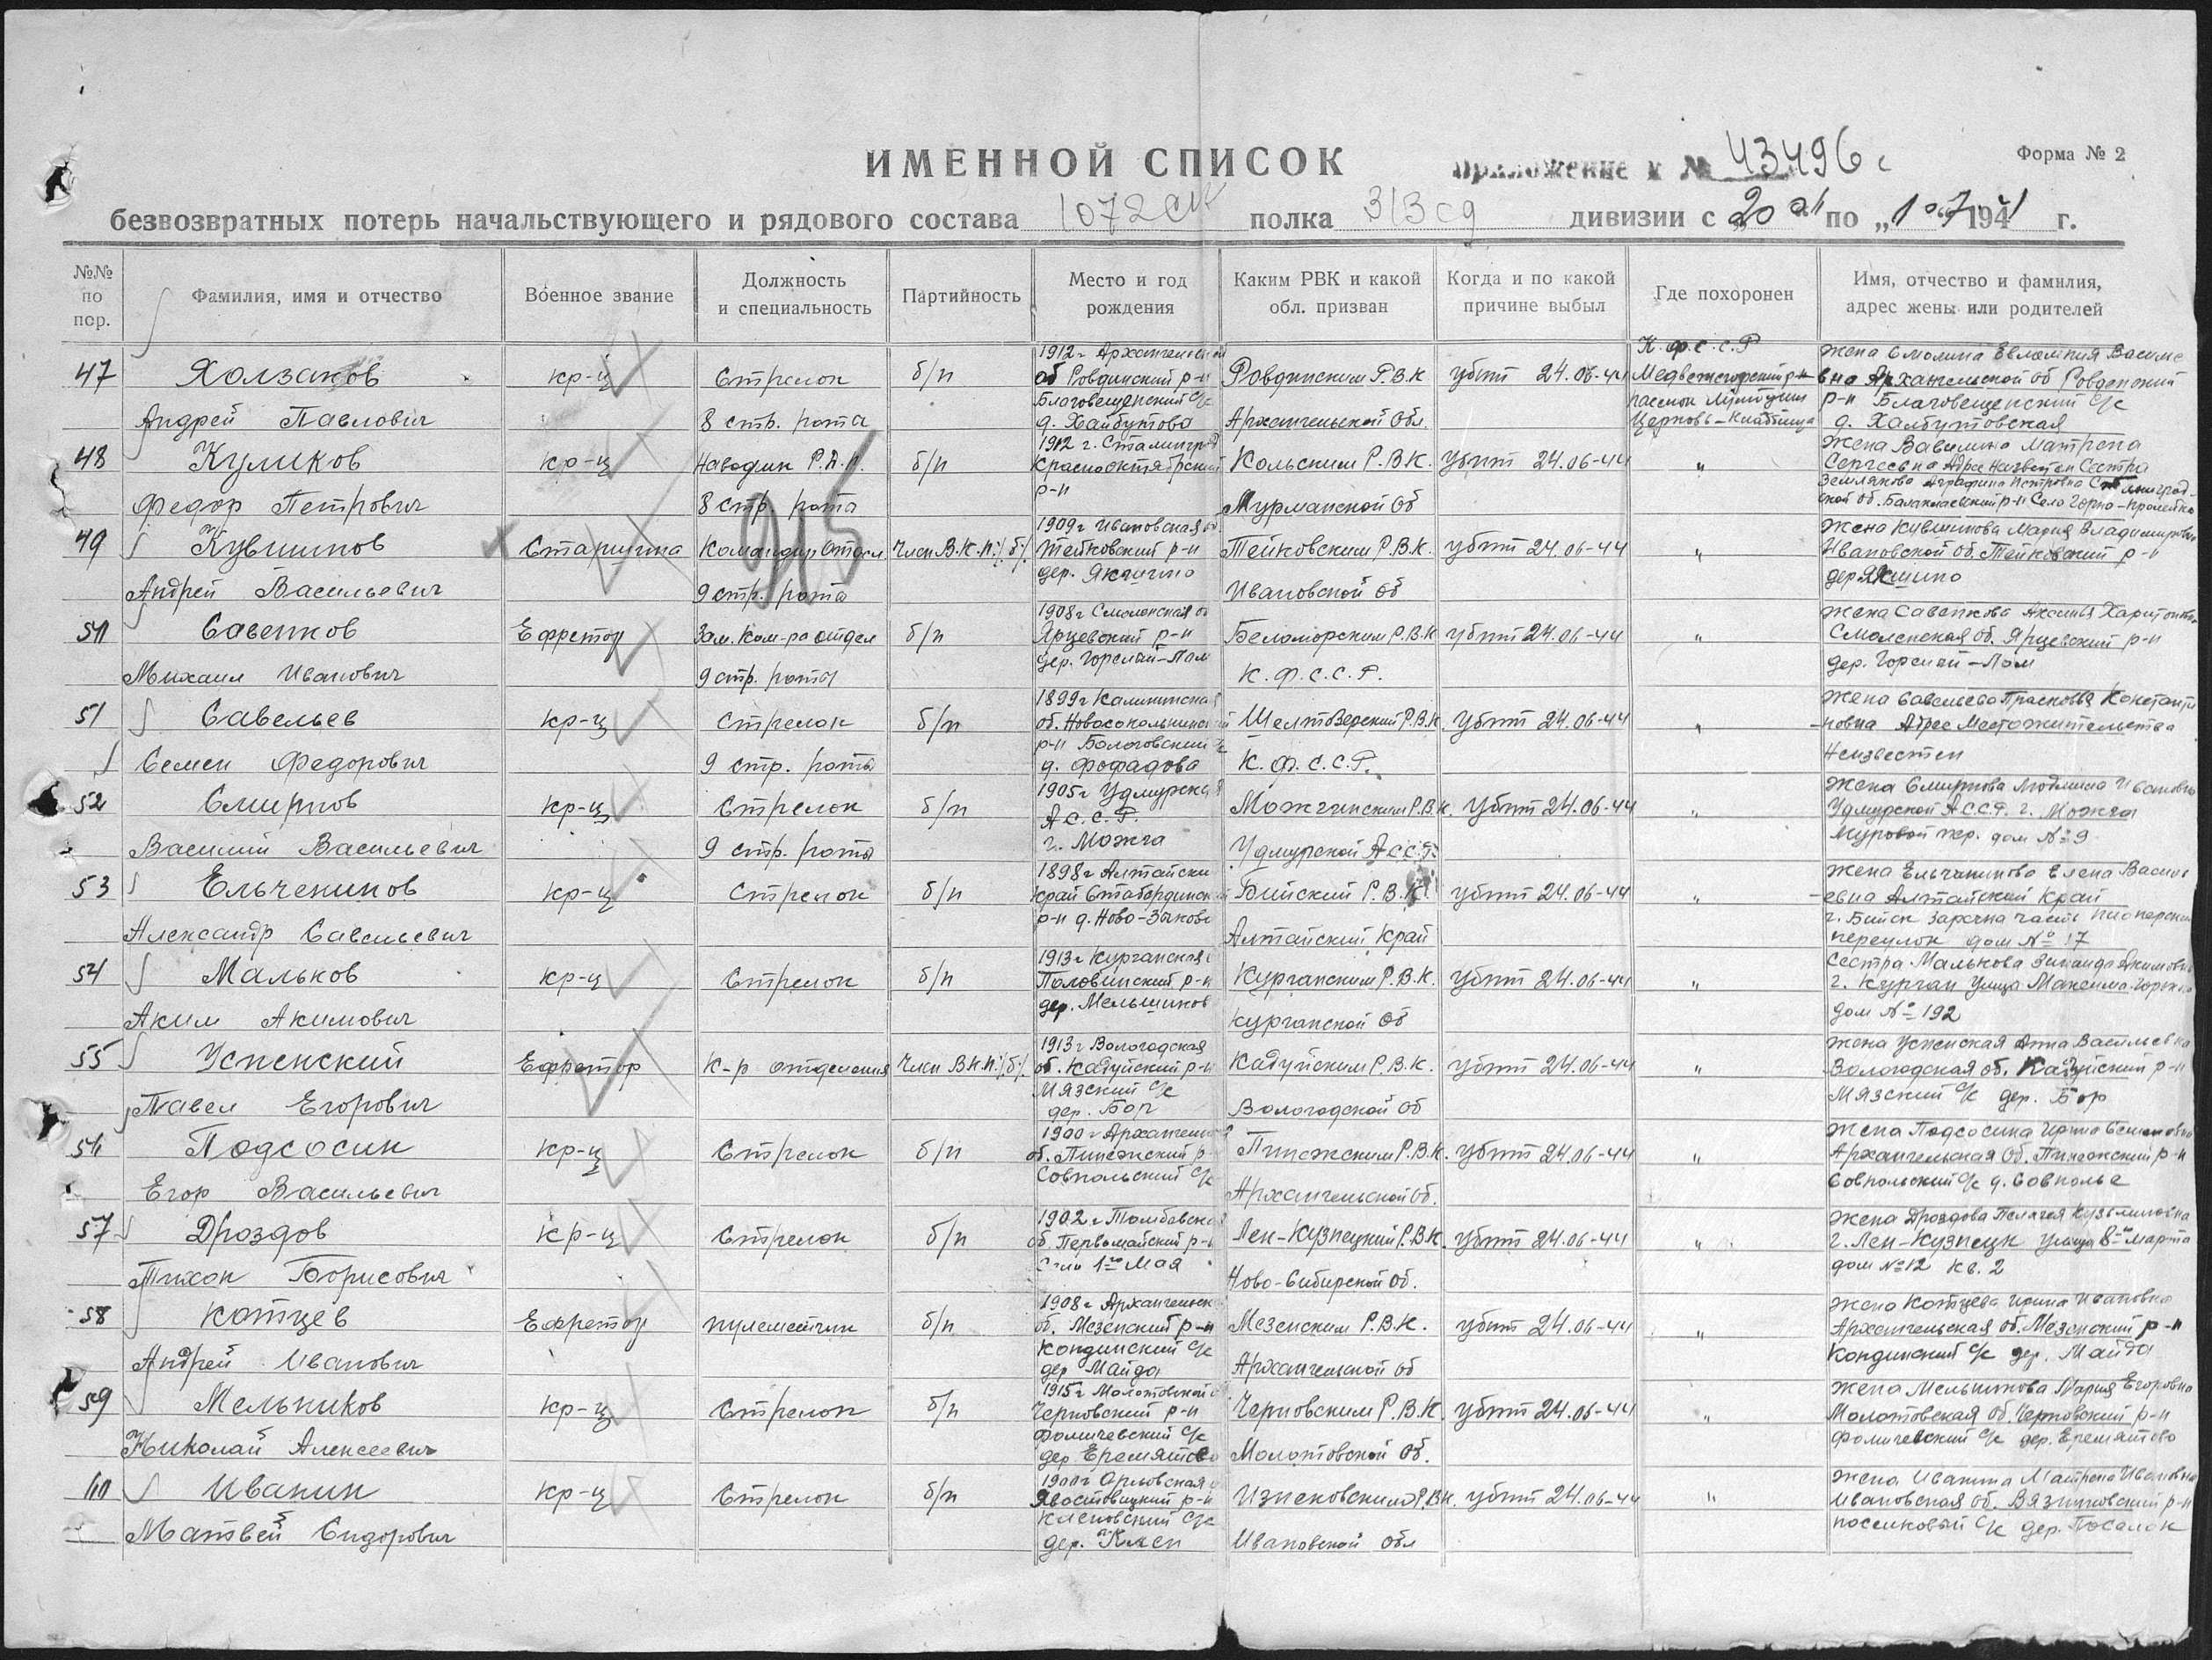 ИМЕННОЙ СПИСОК
Приложение к № 43496с
Форма № 2
безвозвратных потерь начальствующего и рядового состава 1072 сп полка 313 сд дивизии с 20 по „1 1944 г.
№№ по пор.
Фамилия, имя и отчество
Военное звание
Должность и специальность
Партийность
Место и год рождения
Каким РВК и какой обл. призван
Когда и по какой причине выбыл
Где похоронен
Имя, отчество и фамилия, адрес жены или родителей
47 Холзаков Андрей Павлович
кр-ц
Стрелок
8 стр. рота
б/п
1912 г Архангельской
об Ровдинский р-н
Благовещенский с/с
д. Хайбутова
Ровдинским Р.В.К
Архангельской Обл.
убит 24.06-44
К.Ф.С.С.Р
Медвежегорский р-н
Церковь-Кладбища
Жена Смолина Евлампия Василье
вна Архангельской об Ровдинский
р-н Благовещенский с/с
д. Халбутовская
48 Куликов Федор Петрович
кр-ц
Наводчик Р.П.П.
8 стр. рота
б/п
1912 г. Сталинград
Краснооктябрский
р-н
Кольским Р.В.К.
Мурманской об
Убит 24.06-44
"
Жена Вавилина Матрена
Сергеевна Адрес Неизвестен Сестра
Землякова Аграфена Петровна
49 Кувшинов Андрей Васильевич
Старшина
Командир Отдел.
9 стр. рота
Член В.К.П./б/.
1909 г Ивановская об.
Тейковский р-н
дер. Якшино
Тейковским Р.В.К.
Ивановской об
убит 24.06-44
"
Жена Кувшинова Мария Владимировна
Ивановской об. Тейковский р-н
дер. Якшино
50 Савенков Михаил Иванович
Ефрейтор
Зам. Ком-ра отдел
9 стр. рота
б/п
1908 г Смоленская об
Ярцевский р-н
Беломорским Р.В.К
К.Ф.С.С.Р.
убит 24.06-44
"
Жена Савенкова Аксинья Харитоновна
Смоленская об. Ярцевский р-н
51 Савельев Семен Федорович
кр-ц
Стрелок
9 стр. рота
б/п
1899 г Калининская
об. Новосокольнический
р-н
д. Фофадова
Шелтозерский Р.В.К.
К.Ф.С.С.Р.
Убит 24.06-44
"
Жена Савельева Прасковья Константи
-новна Адрес Местожительства
Неизвестен
52 Смирнов Василий Васильевич
кр-ц
Стрелок
9 стр. рота
б/п
1905 г Удмурская
А.С.С.Р.
г. Можга
Можгинским Р.В.К.
Удмурской А.С.С.Р.
Убит 24.06-44
"
Жена Смирнова Людмила Ивановна
Удмурской А.С.С.Р. г. Можга
пер. дом № 9
53 Ельченинов Александр Савельевич
кр-ц
Стрелок
б/п
1898 г Алтайски
край
р-н д. Ново-Зыково
Бийский Р.В.К.
Алтайский Край
убит 24.06-44
"
Жена Ельчанинова Елена Василь
-евна Алтайский Край
г. Бийск Заречна часть Пионерский
переулок дом № 17
54 Мальков Аким Акимович
кр-ц
Стрелок
б/п
1913 г Курганская
Половинский р-н
дер. Мельшиков
Курганским Р.В.К.
Курганской Об
убит 24.06-44
"
Сестра Малькова Зинаида Акимовна
г. Курган Улица Максима Горького
дом № 192
55 Успенский Павел Егорович
Ефрейтор
К-р отделения
Член В.К.П./б/.
1913 г Вологодская
об. Кадуйский р-н
Мязский с/с
дер. Бор
Кадуйским Р.В.К.
Вологодской об
убит 24.06-44
"
Жена Успенская Анна Васильевна
Вологодская об. Кадуйский р-н
Мязский с/с дер. Бор
56 Подсосин Егор Васильевич
кр-ц
Стрелок
б/п
1900 г Архангельс
об. Пинежский р-
Совпольский с/с
Пинежским Р.В.К.
Архангельской об.
убит 24.06-44
"
Архангельская Об. Пинежский р-н
Совпольский с/с д. Совполье
57 Дроздов Тихон Борисович
кр-ц
Стрелок
б/п
1902 г Тамбовска
об. Первомайский р-н
Село 1ое Мая
Лен-Кузнецкий Р.В.К.
Ново-Сибирской об.
убит 24.06-44
"
Жена Дроздова Пелагея Кузьминовна
г. Лен-Кузнецк улица 8ое Марта
дом № 12 кв. 2
58 Котцев Андрей Иванович
Ефрейтор
пулеметчик
б/п
1908 г Архангельск
об. Мезенский р-н
Кондинский с/с
дер Майда
Мезенским Р.В.К.
Архангельской об
убит 24.06-44
"
Жена Котцева Ирина Ивановна
Архангельская об. Мезенский р-н
Кондинский с/с дер. Майда
59 Мельников Николай Алексеевич
кр-ц
Стрелок
б/п
1915 г Молотовской
Черновский р-н
Фомичевский с/с
дер. Еремятово
Черновским Р.В.К.
Молотовской об.
убит 24.06-44
"
Жена Мельникова Мария Егоровна
Молотовская об. Черновский р-н
Фомичевский с/с дер. Еремятово
60 Иванин Матвей Сидорович
кр-ц
Стрелок
б/п
1900 г Орловская
р-н
Кленовский с/с
дер. Клен
Ивановской обл
убит 24.06-44
"
Жена Иванина Матрена Ивановна
Ивановская об. Вязниковский р-н
поселковый с/с дер. Поселок
915